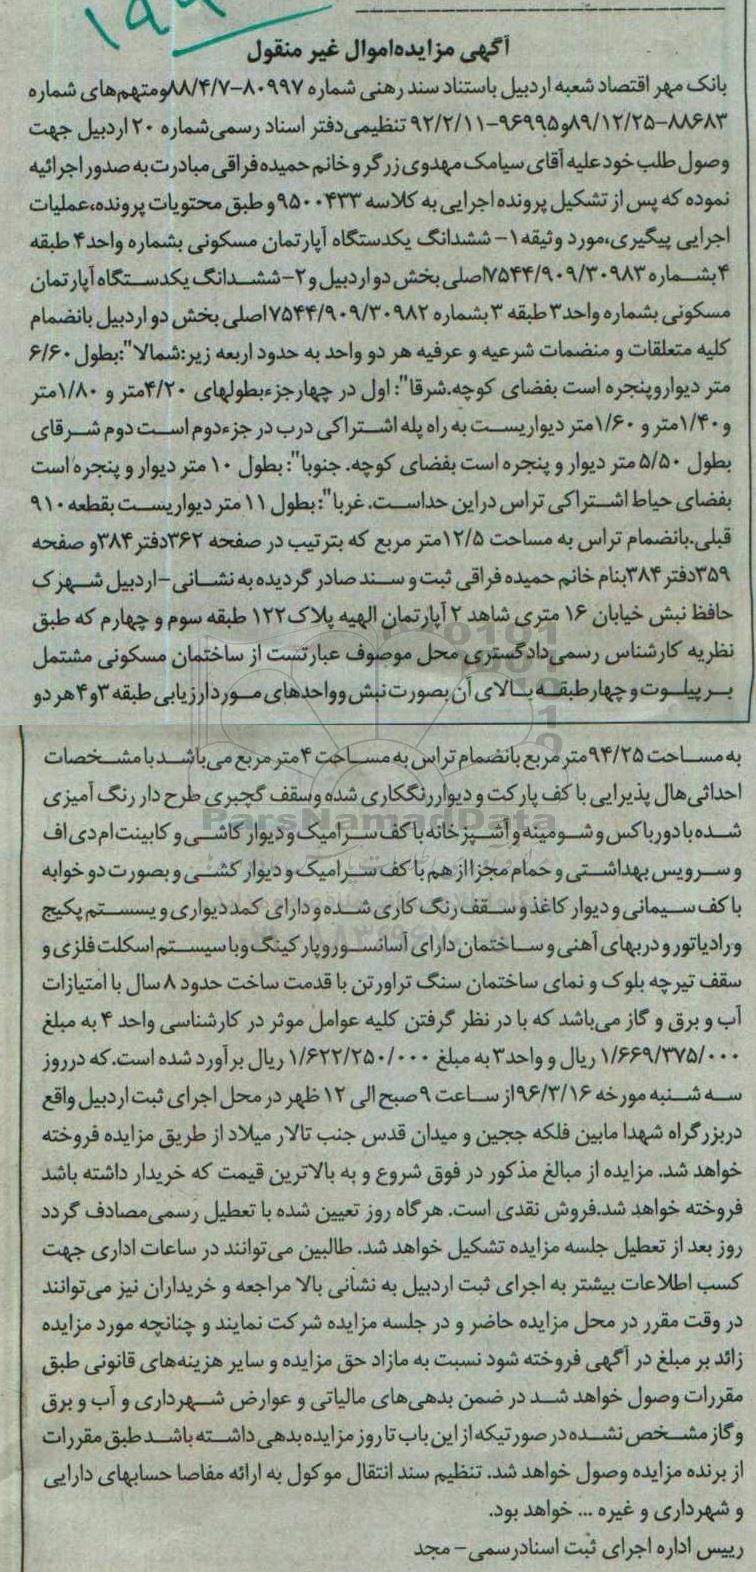 آگهی مزایده‌اموال غیر منقول
بانک مهر اقتصاد شعبه اردبیل باستناد سند رهنی شماره ۸۰۹۹۷-۸۸/۴/۷ومتهم‌های شماره
۸۸۶۸۳-۸۹/۱۲/۲۵و۹۶۹۹۵-۹۲/۲/۱۱ تنظیمی‌دفتر اسناد رسمی‌شماره ۲۰ اردبیل جهت
وصول طلب خود علیه آقای سیامک مهدوی زرگر و خانم حمیده فراقی مبادرت به صدور اجرائیه
نموده که پس از تشکیل پرونده اجرایی به کلاسه ۹۵۰۰۴۳۳و طبق محتویات پرونده،عملیات
اجرایی پیگیری،مورد وثیقه۱- ششدانگ یکدستگاه آپارتمان مسکونی بشماره واحد۴ طبقه
۴بشماره ۷۵۴۴/۹۰۹/۳۰۹۸۳اصلی بخش دو اردبیل و۲-ششدانگ یکدستگاه آپارتمان
مسکونی بشماره واحد۳ طبقه ۳ بشماره ۷۵۴۴/۹۰۹/۳۰۹۸۲اصلی بخش دو اردبیل بانضمام
کلیه متعلقات و منضمات شرعیه و عرفیه هر دو واحد به حدود اربعه زیر:شمالا":بطول ۶/۶۰
متر دیواروپنجره است بفضای کوچه.شرقا": اول در چهارجزءبطولهای ۴/۲۰متر و ۱/۸۰متر
و۱/۴۰متر و ۱/۶۰متر دیواریست به راه پله اشتراکی درب در جزءدوم است دوم شرقای
بطول ۵/۵۰ متر دیوار و پنجره است بفضای کوچه. جنوبا": بطول ۱۰ متر دیوار و پنجره است
بفضای حیاط اشتراکی تراس دراین حداست. غربا": بطول ۱۱ متر دیواریست بقطعه ۹۱۰
قبلی.بانضمام تراس به مساحت ۱۲/۵متر مربع که بترتیب در صفحه ۳۶۲دفتر ۳۸۴و صفحه
۳۵۹دفتر ۳۸۴بنام خانم حمیده فراقی ثبت و سند صادر گردیده به نشانی -اردبیل شهرک
حافظ نبش خیابان ۱۶ متری شاهد ۲ آپارتمان الهیه پلاک۱۲۲ طبقه سوم و چهارم که طبق
نظریه کارشناس رسمی‌دادگستری محل موصوف عبارتست از ساختمان مسکونی مشتمل
بر پیلوت و چهار طبقه بالای آن بصورت نبش وواحدهای موردارزیابی طبقه ۳و۴ هر دو
به مساحت ۹۴/۲۵متر مربع بانضمام تراس به مساحت ۴متر مربع می‌باشد با مشخصات
احداثی هال پذیرایی با کف پارکت و دیواررنگکاری شده وسقف گچبری طرح دار رنگ آمیزی
شده با دورباکس و شومینه و آشپزخانه با کف سرامیک و دیوار کاشی و کابینت ام دی اف
و سرویس بهداشتی و حمام مجزا از هم با کف سرامیک و دیوار کشی و بصورت دو خوابه
با کف سیمانی و دیوار کاغذ و سقف رنگ کاری شده و دارای کمد دیواری و سیستم پکیج
ورادیاتور و دربهای آهنی و ساختمان دارای آسانسوروپارکینگ وبا سیستم اسکلت فلزی و
سقف تیرچه بلوک و نمای ساختمان سنگ تراورتن با قدمت ساخت حدود ۸ سال با امتیازات
آب و برق و گاز می‌باشد که با در نظر گرفتن کلیه عوامل موثر در کارشناسی واحد ۴ به مبلغ
۱/۶۶۹/۳۷۵/۰۰۰ ریال و واحد۳ به مبلغ ۱/۶۲۲/۲۵۰/۰۰۰ ریال برآورد شده است.که درروز
سه شنبه مورخه ۹۶/۳/۱۶از ساعت ۹صبح الی ۱۲ ظهر در محل اجرای ثبت اردبیل واقع
دربزرگراه شهدا مابین فلکه ججین و میدان قدس جنب تالار میلاد از طریق مزایده فروخته
خواهد شد. مزایده از مبالغ مذکور در فوق شروع و به بالاترین قیمت که خریدار داشته باشد
فروخته خواهد شد.فروش نقدی است. هرگاه روز تعیین شده با تعطیل رسمی‌مصادف گردد
روز بعد از تعطیل جلسه مزایده تشکیل خواهد شد. طالبین می‌توانند در ساعات اداری جهت
کسب اطلاعات بیشتر به اجرای ثبت اردبیل به نشانی بالا مراجعه و خریداران نیز می‌توانند
در وقت مقرر در محل مزایده حاضر و در جلسه مزایده شرکت نمایند و چنانچه مورد مزایده
زائد بر مبلغ در آگهی فروخته شود نسبت به مازاد حق مزایده و سایر هزینه‌های قانونی طبق
مقررات وصول خواهد شد در ضمن بدهی‌های مالیاتی و عوارض شهرداری و آب و برق
وگاز مشخص نشده در صورتیکه از این باب تا روز مزایده بدهی داشته باشد طبق مقررات
از برنده مزایده وصول خواهد شد. تنظیم سند انتقال موکول به ارائه مفاصا حسابهای دارایی
و شهرداری و غیره ... خواهد بود.
رییس اداره اجرای ثبت اسنادرسمی- مجد
ParsNamadData